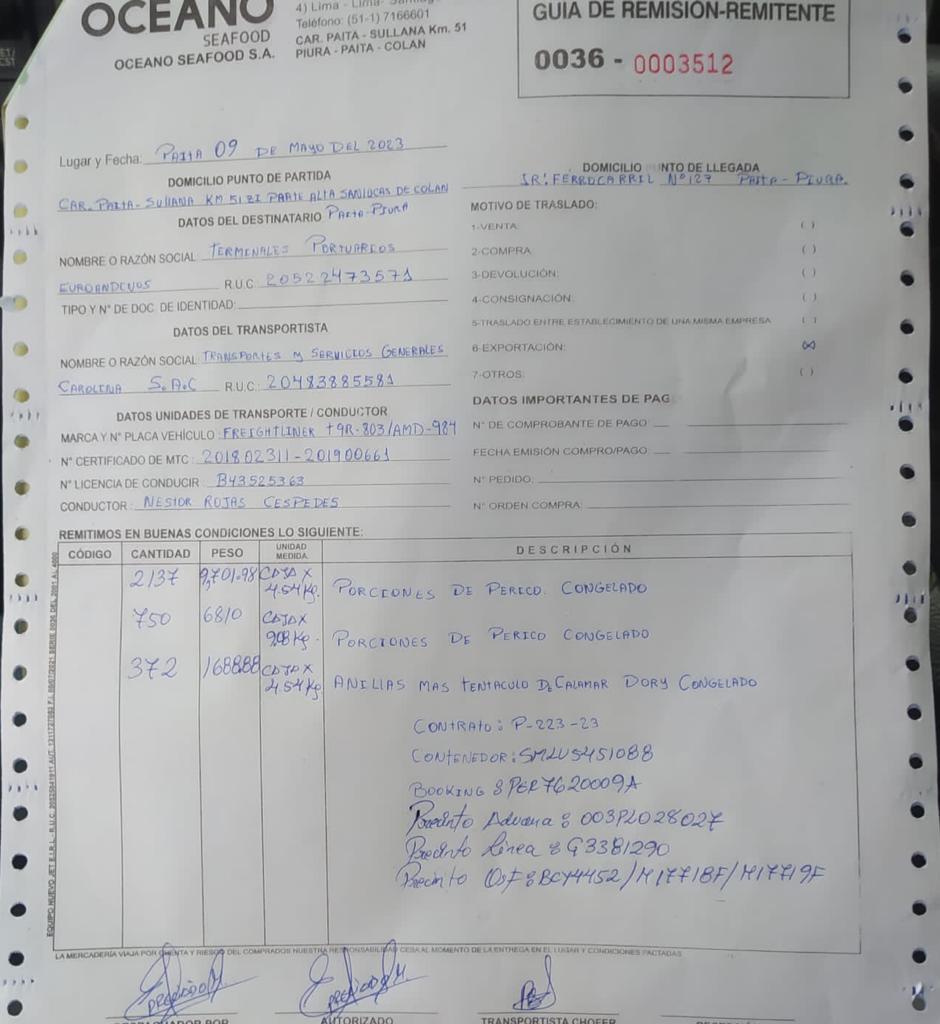 OCEANO
SEAFOOD
OCEANO SEAFOOD S.A.
4) Lima - Lima-
Teléfono: (51-1) 7166601
CAR. PAITA - SULLANA Km. 51
PIURA - PAITA - COLAN
GUIA DE REMISIÓN-REMITENTE
0036 - 0003512
Lugar y Fecha: PAITA 09 DE MAYO DEL 2023
DOMICILIO PUNTO DE PARTIDA
CAR. PAITA- SULLANA KM 51 ZI PARTE ALTA SAN LUCAS DE COLAN
PAITA-PIURA
DOMICILIO PUNTO DE LLEGADA
JR: FERROCARRIL Nº 127 PAITA-PIURA.
DATOS DEL DESTINATARIO
NOMBRE O RAZÓN SOCIAL TERMINALES PORTUARIOS
EUROANDINOS R.U.C. 20522473571
TIPO Y N° DE DOC. DE IDENTIDAD:
DATOS DEL TRANSPORTISTA
NOMBRE O RAZÓN SOCIAL: TRANSPORTES Y SERVICIOS GENERALES
CAROLINA S.A.C R.U.C.: 20483885581
DATOS UNIDADES DE TRANSPORTE / CONDUCTOR
MARCA Y N° PLACA VEHÍCULO: FREIGHTLINER T9R-803/AMD-984
N° CERTIFICADO DE MTC: 201802311-201900661
N° LICENCIA DE CONDUCIR: B43525363
CONDUCTOR: NESTOR ROJAS CESPEDES
MOTIVO DE TRASLADO:
1-VENTA: ( )
2-COMPRA: ( )
3-DEVOLUCIÓN: ( )
4-CONSIGNACIÓN: ( )
5-TRASLADO ENTRE ESTABLECIMIENTO DE UNA MISMA EMPRESA ( )
6-EXPORTACIÓN: (X)
7-OTROS: ( )
DATOS IMPORTANTES DE PAG
N° DE COMPROBANTE DE PAGO:
FECHA EMISIÓN COMPRO/PAGO:
N° PEDIDO:
N° ORDEN COMPRA:
REMITIMOS EN BUENAS CONDICIONES LO SIGUIENTE:
CÓDIGO CANTIDAD PESO UNIDAD MEDIDA DESCRIPCIÓN
2137 9,701.98 CAJA X 4.54 Kg. PORCIONES DE PERICO CONGELADO
750 6810 CAJA X 9.08 Kg. PORCIONES DE PERICO CONGELADO
372 1688.88 CAJA X 4.54 Kg ANILLAS MAS TENTACULO DE CALAMAR DORY CONGELADO
CONTRATO: P-223-23
CONTENEDOR: SMLU5451088
BOOKING: PER7620009A
Precinto Aduana: 003PL028027
Precinto Linea: G3381290
LA MERCADERÍA VIAJA POR CUENTA Y RIESGO DEL COMPRADOS NUESTRA RESPONSABILIDAD CESA AL MOMENTO DE LA ENTREGA EN EL LUGAR Y CONDICIONES PACTADAS
AUTORIZADO
TRANSPORTISTA CHOFER